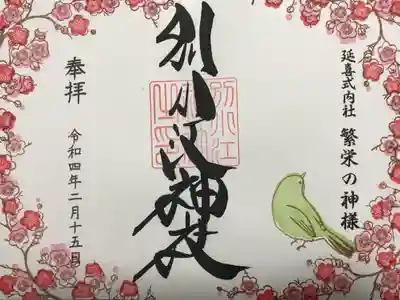 延喜式内社 繁栄の神様
別小江神社
別小江
之印
奉拝
令和四年二月十五日